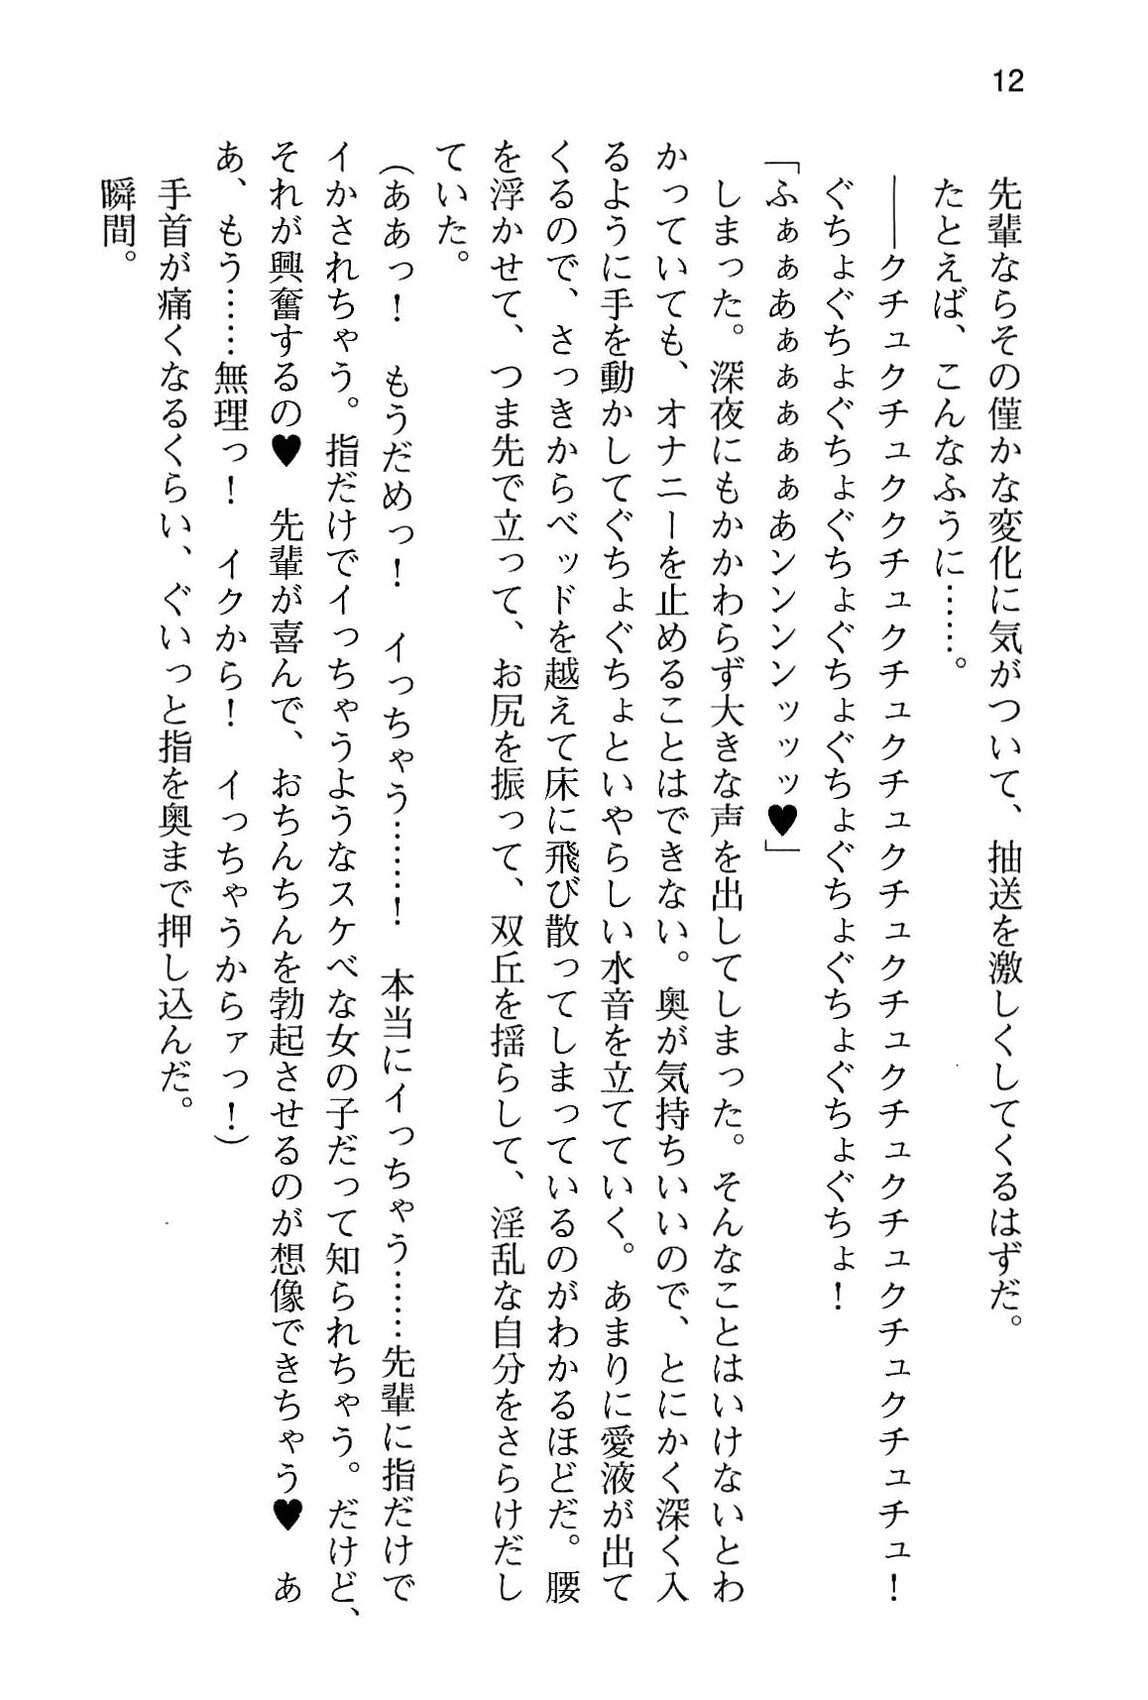 12
先輩ならその僅かな変化に気がついて、抽送を激しくしてくるはずだ。
たとえば、こんなふうに……。
――クチュクチュククチュクチュクチュクチュクチュクチュクチュクチュクチュチュ！
ぐちょぐちょぐちょぐちょぐちょぐちょぐちょぐちょぐちょぐちょ！
「ふぁぁあぁぁぁぁぁあンンンンッッッ♥」
しまった。深夜にもかかわらず大きな声を出してしまった。そんなことはいけないとわ
かっていても、オナニーを止めることはできない。奥が気持ちいいので、とにかく深く入
るように手を動かしてぐちょぐちょといやらしい水音を立てていく。あまりに愛液が出て
くるので、さっきからベッドを越えて床に飛び散ってしまっているのがわかるほどだ。腰
を浮かせて、つま先で立って、お尻を振って、双丘を揺らして、淫乱な自分をさらけだし
ていた。
（ああっ！　もうだめっ！　イっちゃう……！　本当にイっちゃう……先輩に指だけで
イかされちゃう。指だけでイっちゃうようなスケベな女の子だって知られちゃう。だけど、
それが興奮するの♥　先輩が喜んで、おちんちんを勃起させるのが想像できちゃう♥　あ
あ、もう……無理っ！　イクから！　イっちゃうからァっ！）
手首が痛くなるくらい、ぐいっと指を奥まで押し込んだ。
瞬間。